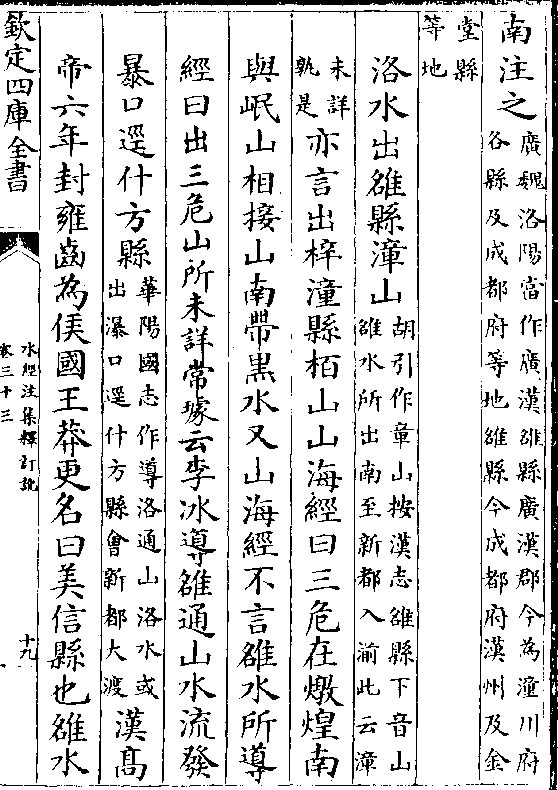 南注之
廣魏洛陽當作廣漢雒縣廣漢郡今為潼川府
各縣及成都府等地雒縣今成都府漢州及金
堂縣
等地
洛水出雒縣漳山
胡引作章山按漢志雒縣下音山
雒水所出南至新都入湔此云漳
未詳
孰是
亦言出梓潼縣栢山山海經曰三危在燉煌南
與岷山相接山南帶黒水又山海經不言雒水所導
經曰出三危山所未詳常璩云李冰導雒通山水流發
暴口逕什方縣
華陽國志作導洛通山洛水或
出瀑口逕什方縣會新都大渡
漢髙
帝六年封雍齒為侯國王莽更名曰美信縣也雒水
欽定四庫全書
水經注集釋訂訛
卷三十三
十九